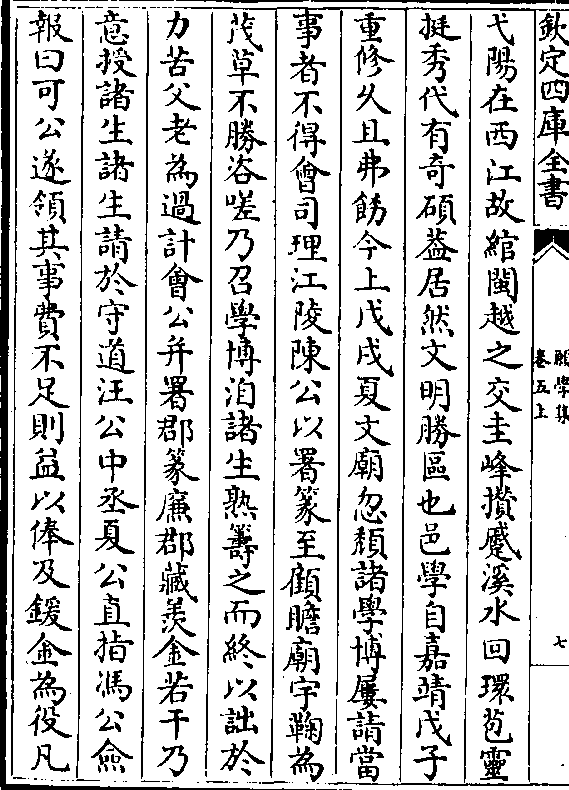 欽定四庫全書
願學集
卷五上
七
弋陽在西江故綰閩越之交圭峰攢蹙溪水回環苞靈
挺秀代有奇碩葢居然文明勝區也邑學自嘉靖戊子
重修久且弗飭今上戊戌夏文廟忽頽諸學博屢請當
事者不得會司理江陵陳公以署篆至顧瞻廟宇鞠為
茂草不勝咨嗟乃召學博洎諸生熟籌之而終以詘於
力苦父老為過計會公并署郡篆廉郡藏羨金若干乃
意授諸生諸生請於守道汪公中丞夏公直指馮公僉
報曰可公遂領其事費不足則益以俸及鍰金為役凡